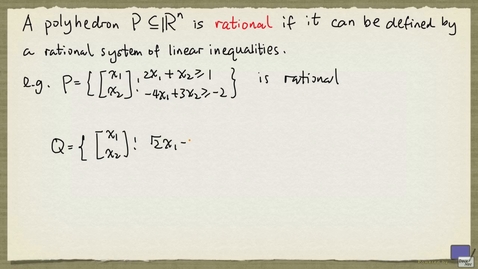 A polyhedron P ⊆ ℝⁿ is rational if it can be defined by
a rational system of linear inequalities.
e.g. P = { [x₁ x₂] : 2x₁ + x₂ ≥ 1, -4x₁ + 3x₂ ≥ -2 } is rational
Q = { [x₁ x₂] : √2x₁ -